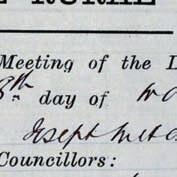 RURAL
Meeting of the
8th day of
Joseph
Councillors: